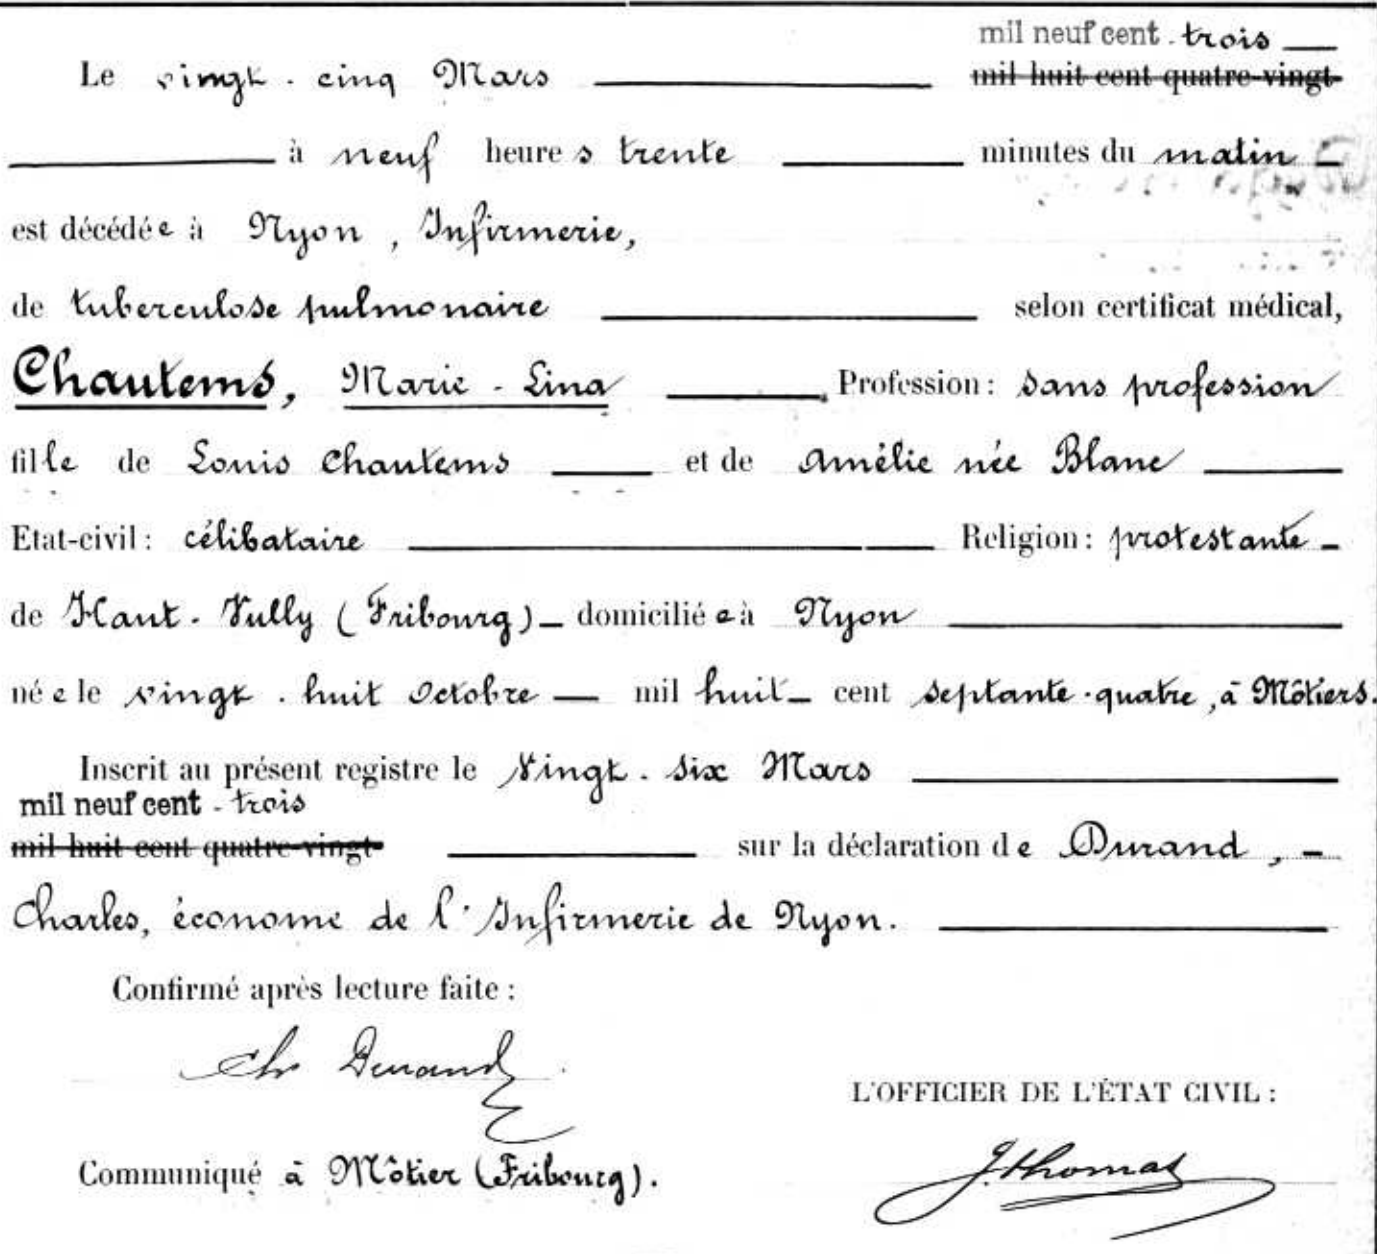 mil neuf cent - trois
Le vingt-cinq Mars mil huit cent quatre-vingt
à neuf heures trente minutes du matin
est décédée à Nyon, Infirmerie,
de tuberculose pulmonaire selon certificat médical,
Chautems, Marie-Lina, Profession: sans profession
fille de Louis Chautems et de Amélie née Blanc
Etat-civil: célibataire Religion: protestante
de Haut-Vully (Fribourg) domiciliée à Nyon
née le vingt-huit Octobre mil huit cent septante-quatre, à Môtiers.
Inscrit au présent registre le Vingt-six Mars
mil neuf cent - trois
mil huit cent quatre-vingt sur la déclaration de Durand,
Charles, économe de l'Infirmerie de Nyon.
Confirmé après lecture faite:
Ch Durand
L'OFFICIER DE L'ÉTAT CIVIL:
J. Thomas
Communiqué à Môtier (Fribourg).